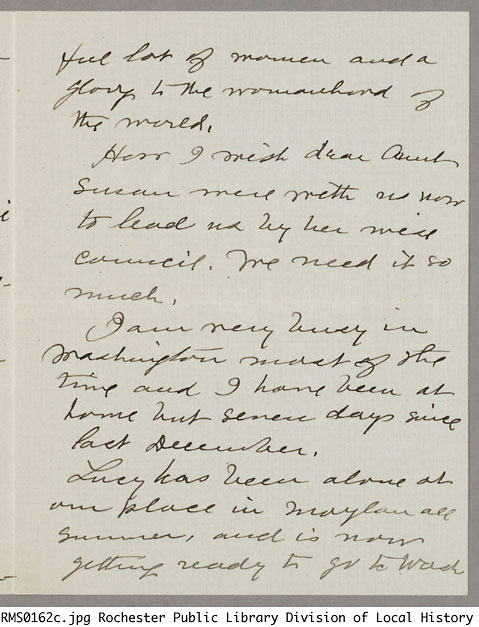 ful lot of women and a
glory to the womanhood of
the world.
How I wish dear Aunt
Susan were with us now
to lead us by her wise
council. We need it so
much.
I am very busy in
Washington most of the
time and I have been at
home but seven days since
last December.
Lucy has been alone at
our place in Moylan all
summer, and is now
getting ready to go to Wash
RMS0162c.jpg Rochester Public Library Division of Local History